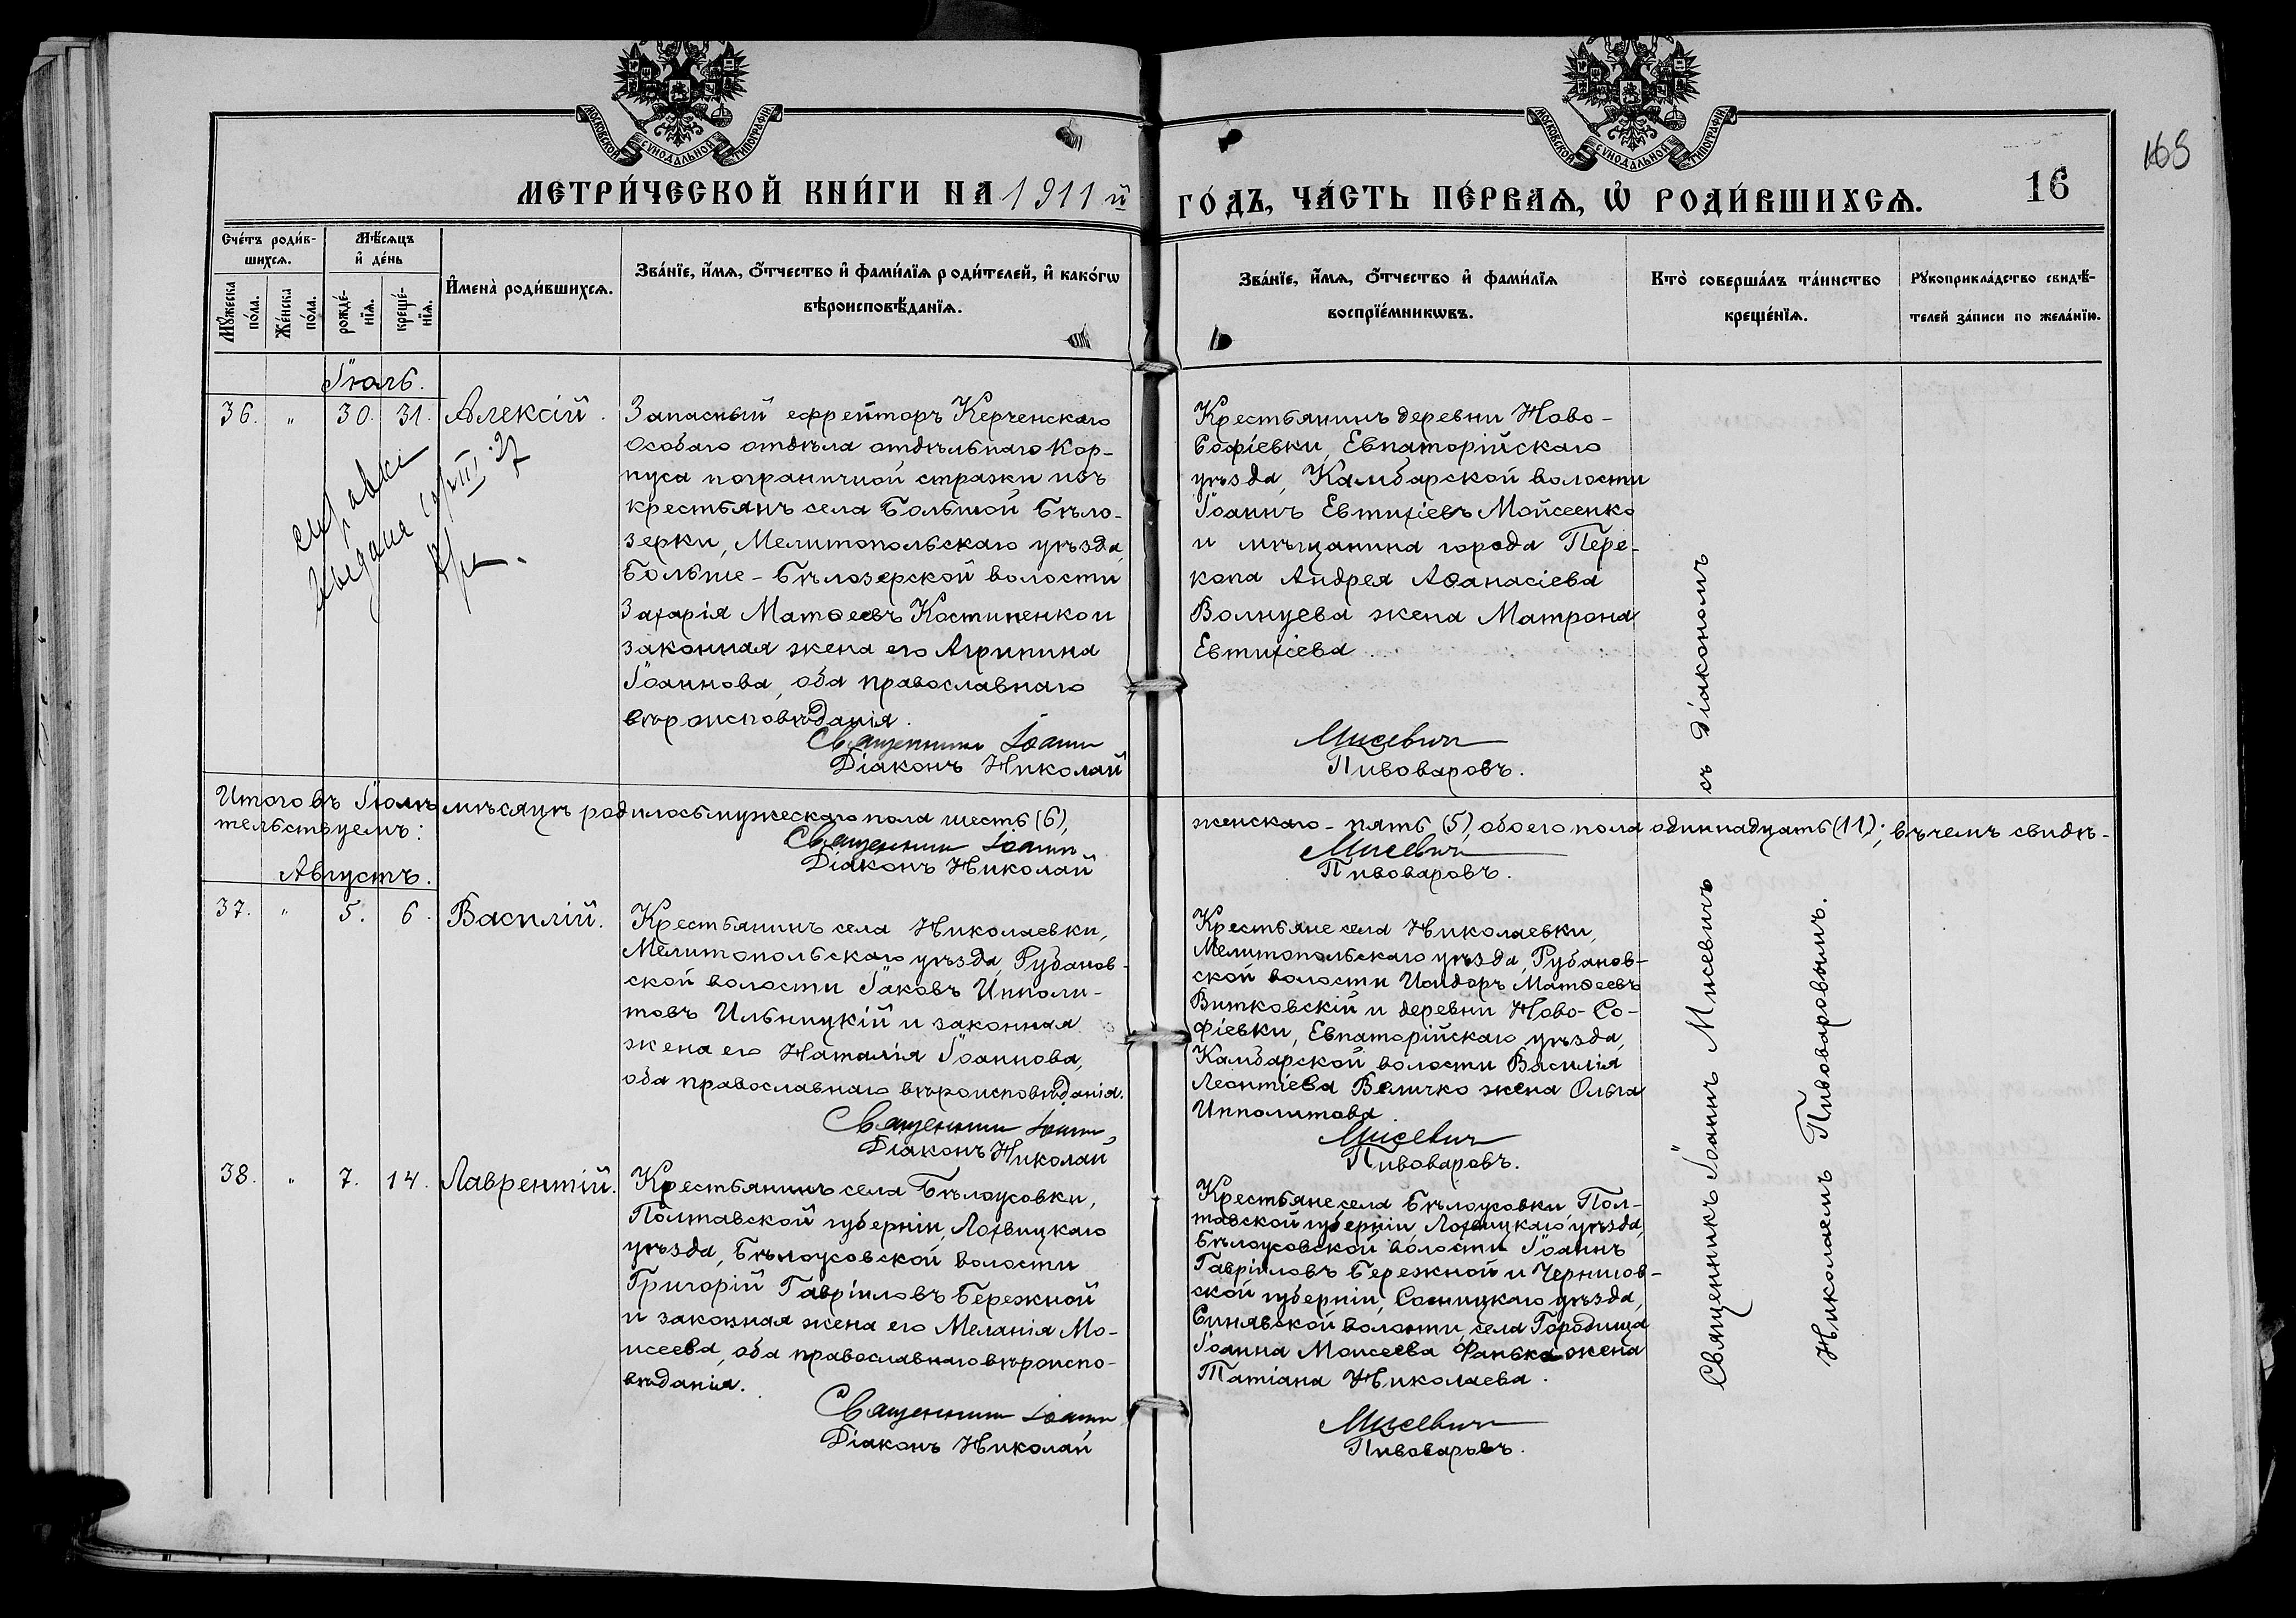 МОСКОВСКОЙ СѴНОДАЛЬНОЙ ТИПОГРАФІИ
МОСКОВСКОЙ СѴНОДАЛЬНОЙ ТИПОГРАФІИ
168
16
МЕТРИ́ЧЕСКОЙ КНИ́ГИ НА 1911 й
ГО́ДЪ, ЧА́СТЬ ПЕ́РВАѦ, Ѡ҆ РОДИ́ВШИХСѦ.
Сче́тъ роди́в-
шихсѧ.
Мꙋ́жеска
по́ла.
Же́нска
по́ла.
Мѣ́сѧцъ
и҆ де́нь
рожде́-
нїѧ.
креще́-
нїѧ.
И҆мена̀ роди́вшихсѧ.
Зва́нїе, и҆́мѧ, ѻ҆́тчество и҆ фами́лїѧ роди́телей, и҆ како́гѡ
вѣроисповѣ́данїѧ.
Зва́нїе, и҆́мѧ, ѻ҆́тчество и҆ фами́лїѧ
воспрїе́мникѡвъ.
Кто̀ соверша́лъ та́инство
креще́нїѧ.
Рꙋкоприкла́дство свидѣ́-
телей за́писи по жела́нїю.
Іюль.
36. " 30. 31. Алексій.
справка
Выдана 19/III 27
Запасный ефрейторъ Керченскаго
Особаго отдѣла отдѣльнаго Кор-
пуса пограничной стражи изъ
крестьянъ села Большой Бѣло-
зерки, Мелитопольскаго уѣзда,
Больше-Бѣлозерской волости
Захарія Матѳеевъ Костипенко и
законная жена его Агрипина
Іоаннова, оба православнаго
вѣроисповѣданія.
Священникъ Іоаннъ
Діаконъ Николай
Крестьянинъ деревни Ново-
Софіевки, Евпаторійскаго
уѣзда, Камбарской волости
Іоаннъ Евтихіевъ Мойсеенко
и мѣщанина города Пере-
копа Андрея Аѳанасіева
Волнуева жена Матрона
Евтихіева.
Мисевичъ
Пивоваровъ.
Итого въ Іюлѣ мѣсяцѣ родилось мужескаго пола шесть (6),
женскаго - пять (5), обоего пола одиннадцать (11); въ чемъ свидѣ-
тельствуемъ:
Священникъ Іоаннъ
Діаконъ Николай
Мисевичъ
Пивоваровъ.
Августъ.
37. " 5. 6. Василій.
Крестьянинъ села Николаевки,
Мелитопольскаго уѣзда, Рубанов-
ской волости Іаковъ Ипполи-
товъ Ильницкій и законная
жена его Наталія Іоаннова,
оба православнаго вѣроисповѣданія.
Священникъ Іоаннъ
Діаконъ Николай
Крестьяне села Николаевки,
Мелитопольскаго уѣзда, Рубанов-
ской волости Исидоръ Матѳеевъ
Витковскій и деревни Ново-Со-
фіевки, Евпаторійскаго уѣзда,
Камбарской волости Василія
Леонтіева Величко жена Ольга
Ипполитова.
Мисевичъ
Пивоваровъ.
38. " 7. 14. Лаврентій.
Крестьянинъ села Бѣлоусовки,
Полтавской губерніи, Лохвицкаго
уѣзда, Бѣлоусовской волости
Григорій Гавріиловъ Бережной
и законная жена его Меланія Мо-
исеева, оба православнаго вѣроиспо-
вѣданія.
Священникъ Іоаннъ
Діаконъ Николай
Крестьяне села Бѣлоусовки Пол-
тавской губерніи, Лохвицкаго уѣзда,
Бѣлоусовской волости Іоаннъ
Гавріиловъ Бережной и Чернигов-
ской губерніи, Сосницкаго уѣзда,
Синявской волости, села Городища
Іоанна Моисеева Фанька жена
Татіана Николаева.
Мисевичъ
Пивоваровъ.
Священникъ Іоаннъ Мисевичъ съ Діакономъ
Николаемъ Пивоваровымъ.